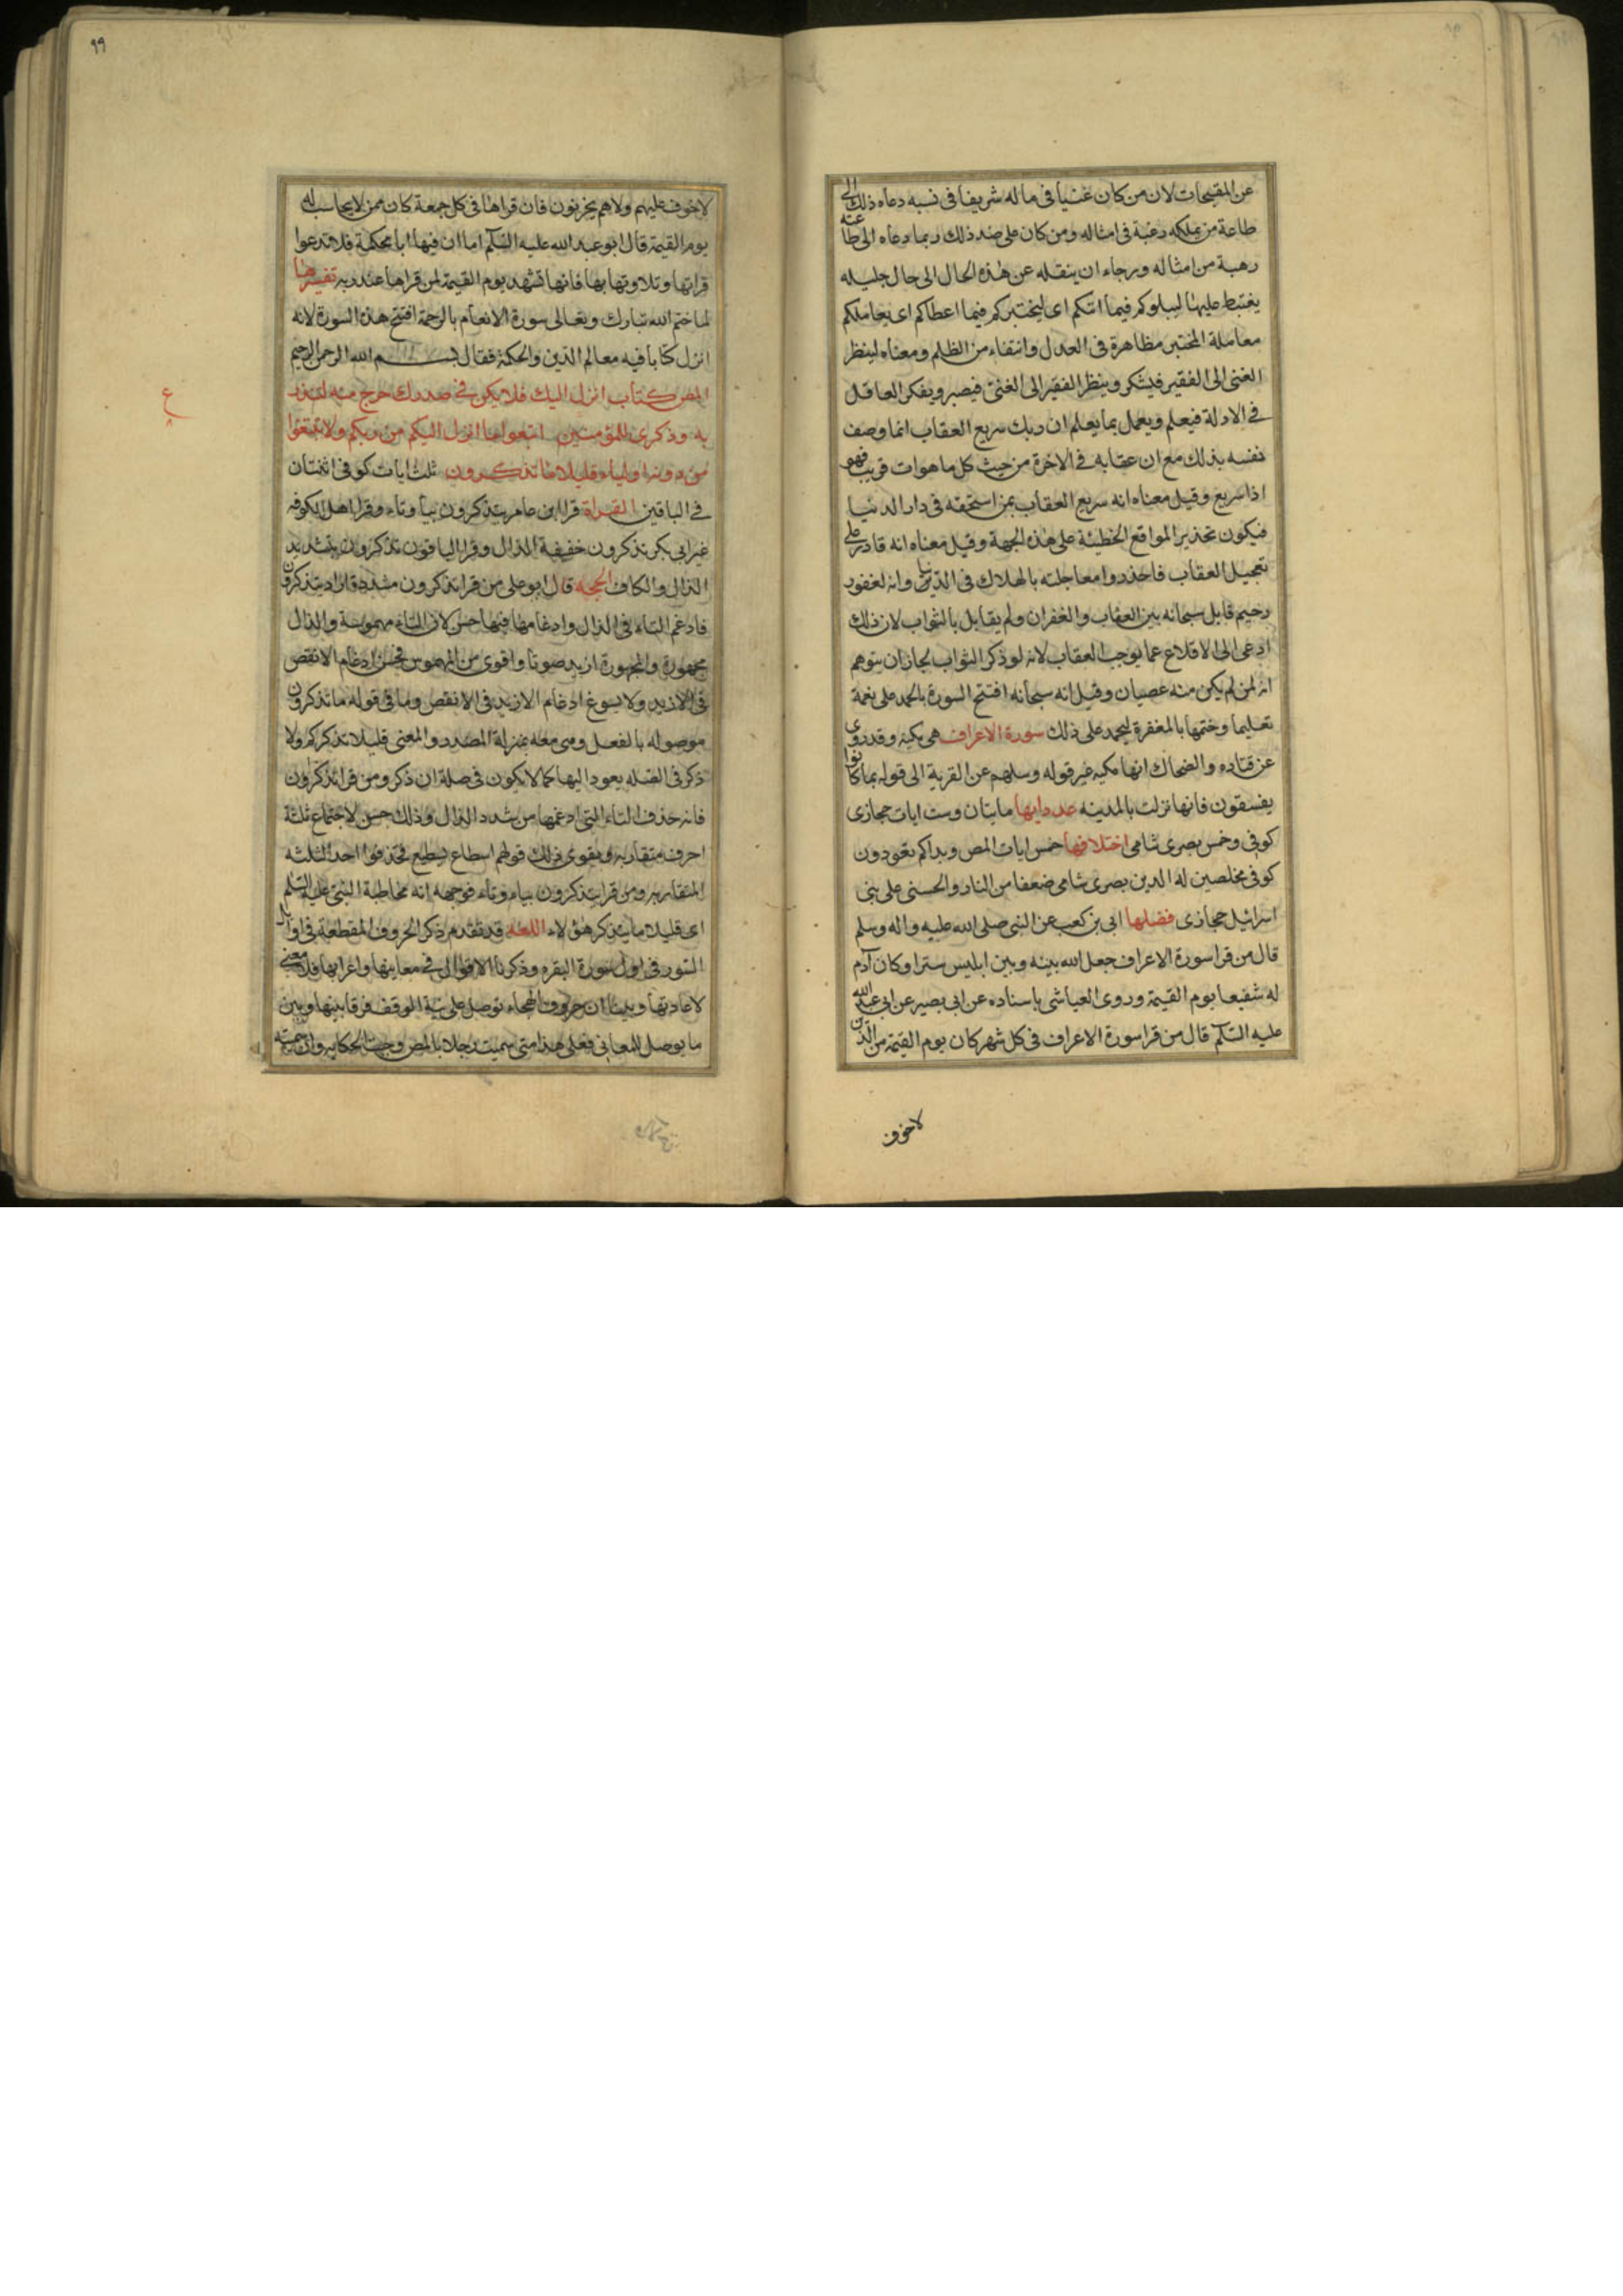 عن المقبحات لان من كان غنيا فى ماله شريفا فى نسبه دعاه ذلك الى
طاعة من يملكه رغبة فى امثاله ومن كان على ضد ذلك ربما دعاه الى طاعته
رهبة من امثاله ورجاء ان ينقله عن هذه الحال الى حال جليله
يغتبط عليها ليبلوكم فيما اتيكم اى ليختبركم فيما اعطاكم اى يعاملكم
معاملة المختبر مظاهرة فى العدل وانتفاء من الظلم ومعناه لينظر
الغنى الى الفقير فيشكر وينظر الفقير الى الغنى فيصبر ويفكر العاقل
فى الادلة فيعلم ويعمل بما يعلم ان ربك سريع العقاب انما وصف
نفسه بذلك مع ان عقابه فى الاخرة من حيث كل ما هو ات قريب فهو
اذا سريع وقيل معناه انه سريع العقاب بمن استحقه فى دار الدنيا
فيكون تحذيرا لمواقع الخطيئة على هذه الجهة وقيل معناه انه قادر على
تعجيل العقاب فاحذروا معاجلته بالهلاك فى الدنيا وانه لغفور
رحيم قابل سبحانه بين العقاب والغفران ولم يقابل بالثواب لان ذلك
ادعى الى الاقلاع عما يوجب العقاب لانه لو ذكر الثواب لجاز ان يتوهم
انه لمن لم يكن منه عصيان وقيل انه سبحانه افتتح السورة بالحمد على نعمة
تعليما وختمها بالمغفرة ليحمد على ذلك سورة الاعراف هى مكيه وقد روى
عن قتاده والضحاك انها مكيه غير قوله وسلهم عن القرية الى قوله بما كانوا
يفسقون فانها نزلت بالمدينه عدد ايها مايتان وست ايات حجازى
كوفى وخمس بصرى شامى اختلافها خمس ايات المص وبداكم تعودون
كوفى مخلصين له الدين بصرى شامى ضعفا من النار والحسنى على بنى
اسرائيل حجازى فضلها ابى بن كعب عن النبى صلى الله عليه واله وسلم
قال من قرا سورة الاعراف جعل الله بينه وبين ابليس سترا وكان آدم
له شفيعا يوم القيمة وروى العياشى باسناده عن ابى بصير عن ابى عبد الله
عليه السلم قال من قرا سورة الاعراف فى كل شهر كان يوم القيمة من الذين
لاخوف
٩٩
لا خوف عليهم ولاهم يحزنون فان قراها فى كل جمعة كان ممن لا يحاسب له
يوم القيمة قال ابو عبد الله عليه السلم اما ان فيها ايا محكمة فلا تدعوا
قراتها وتلاوتها بها فانها تشهد يوم القيمة لمن قراها عند ربه تفسيرها
لما ختم الله تبارك وتعالى سورة الانعام بالرحمة افتتح هذه السورة لانه
انزل كتابا فيه معالم الدين والحكمة فقال بسم الله الرحمن الرحيم
المص كتاب انزل اليك فلا يكن فى صدرك حرج منه لتنذر
به وذكرى للمؤمنين اتبعوا ما انزل اليكم من ربكم ولا تتبعوا
من دونه اولياء قليلا ما تذكرون ثلث ايات كوفى اثنتان
فى الباقين القراة قرا ابن عامر يتذكرون بياء وتاء وقرا اهل الكوفه
غير ابى بكر تذكرون خفيفة الذال وقرا الباقون تذكرون بتشديد
الذال والكاف الحجه قال ابو على من قرا تذكرون مشددة اراد يتذكرون
فادغم التاء فى الذال وادغامها فيها حسن لان التاء مهموسة والذال
مجهورة والمجهورة ازيد صوتا واقوى من المهموس فحسن ادغام الانقص
فى الازيد ولا يسوغ ادغام الازيد فى الانقص وما فى قوله ما تذكرون
موصوله بالفعل وهى معه بمنزلة المصدر والمعنى قليلا تذكركم ولا
ذكر فى الصله يعود اليها كما لا يكون فى صلة ان ذكر ومن قرا تذكرون
فانه حذف التاء التى ادغمها من شدد الذال وذلك حسن لاجتماع ثلثة
احرف متقاربه ويقوى ذلك قولهم اسطاع يسطيع فحذفوا احد الثلثه
المتقاربه ومن قرا يتذكرون بياء وتاء فوجهه انه مخاطبة النبى عليه السلم
اى قليلا ما يتذكر هؤلاء اللغه قد تقدم ذكر الحروف المقطعة فى اوايل
السور فى اول سورة البقره وذكرنا الاقوال فى معانيها واعرابها فلا معنى
لاعادتها وبينا ان حروف الهجاء توصل على نية الوقف فرقا بينها وبين
ما يوصل للمعانى فعلى هذا متى سميت رجلا بالمص وجبت الحكايه وان سميته
ع